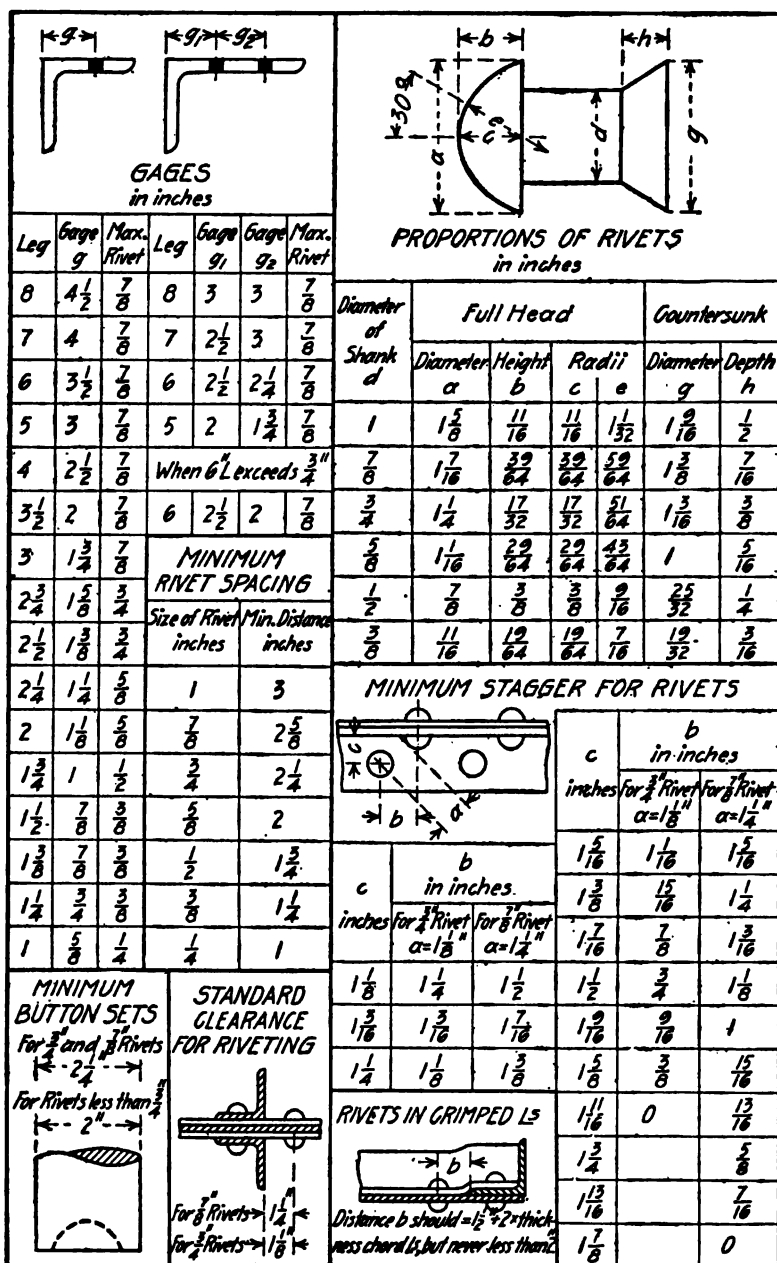 g g1 g2
GAGES
in inches
Leg Gage g Max. Rivet Leg Gage g1 Gage g2 Max. Rivet
8 4 1/2 7/8 8 3 3 7/8
7 4 7/8 7 2 1/2 3 7/8
6 3 1/2 7/8 6 2 1/2 2 1/4 7/8
5 3 7/8 5 2 1 3/4 7/8
4 2 1/2 7/8 When 6" L exceeds 3/4"
3 1/2 2 7/8 6 2 1/2 2 7/8
3 1 3/4 7/8
2 3/4 1 5/8 3/4
2 1/2 1 3/8 3/4
2 1/4 1 1/4 5/8
2 1 1/8 5/8
1 3/4 1 1/2
1 1/2 7/8 3/8
1 3/8 7/8 3/8
1 1/4 3/4 3/8
1 5/8 1/4
MINIMUM
RIVET SPACING
Size of Rivet inches Min. Distance inches
1 3
7/8 2 5/8
3/4 2 1/4
5/8 2
1/2 1 3/4
3/8 1 1/4
1/4 1
MINIMUM
BUTTON SETS
For 3/4" and 7/8" Rivets
2 1/4"
For Rivets less than 3/4"
2"
STANDARD
CLEARANCE
FOR RIVETING
For 7/8" Rivets 1 1/4"
For 3/4" Rivets 1 1/8"
b h
30° a e c d g
PROPORTIONS OF RIVETS
in inches
Diameter of Shank d Full Head Countersunk
Diameter a Height b Radii c e Diameter g Depth h
1 1 5/8 11/16 11/16 1 1/32 1 9/16 1/2
7/8 1 7/16 39/64 39/64 59/64 1 3/8 7/16
3/4 1 1/4 17/32 17/32 51/64 1 3/16 3/8
5/8 1 1/16 29/64 29/64 43/64 1 5/16
1/2 7/8 3/8 3/8 9/16 25/32 1/4
3/8 11/16 19/64 19/64 7/16 19/32 3/16
MINIMUM STAGGER FOR RIVETS
c b a
c inches b in inches.
For 3/4" Rivet a=1 1/8" For 7/8" Rivet a=1 1/4"
1 1/8 1 1/4 1 1/2
1 3/16 1 3/16 1 7/16
1 1/4 1 1/8 1 3/8
c inches b in inches
For 3/4" Rivet a=1 1/8" For 7/8" Rivet a=1 1/4"
1 5/16 1 1/16 1 5/16
1 3/8 15/16 1 1/4
1 7/16 7/8 1 3/16
1 1/2 3/4 1 1/8
1 9/16 9/16 1
1 5/8 3/8 15/16
1 11/16 0 13/16
1 3/4 5/8
1 13/16 7/16
1 7/8 0
RIVETS IN CRIMPED Ls
b
Distance b should = 1 1/2" + 2 x thick-
ness chord Ls, but never less than